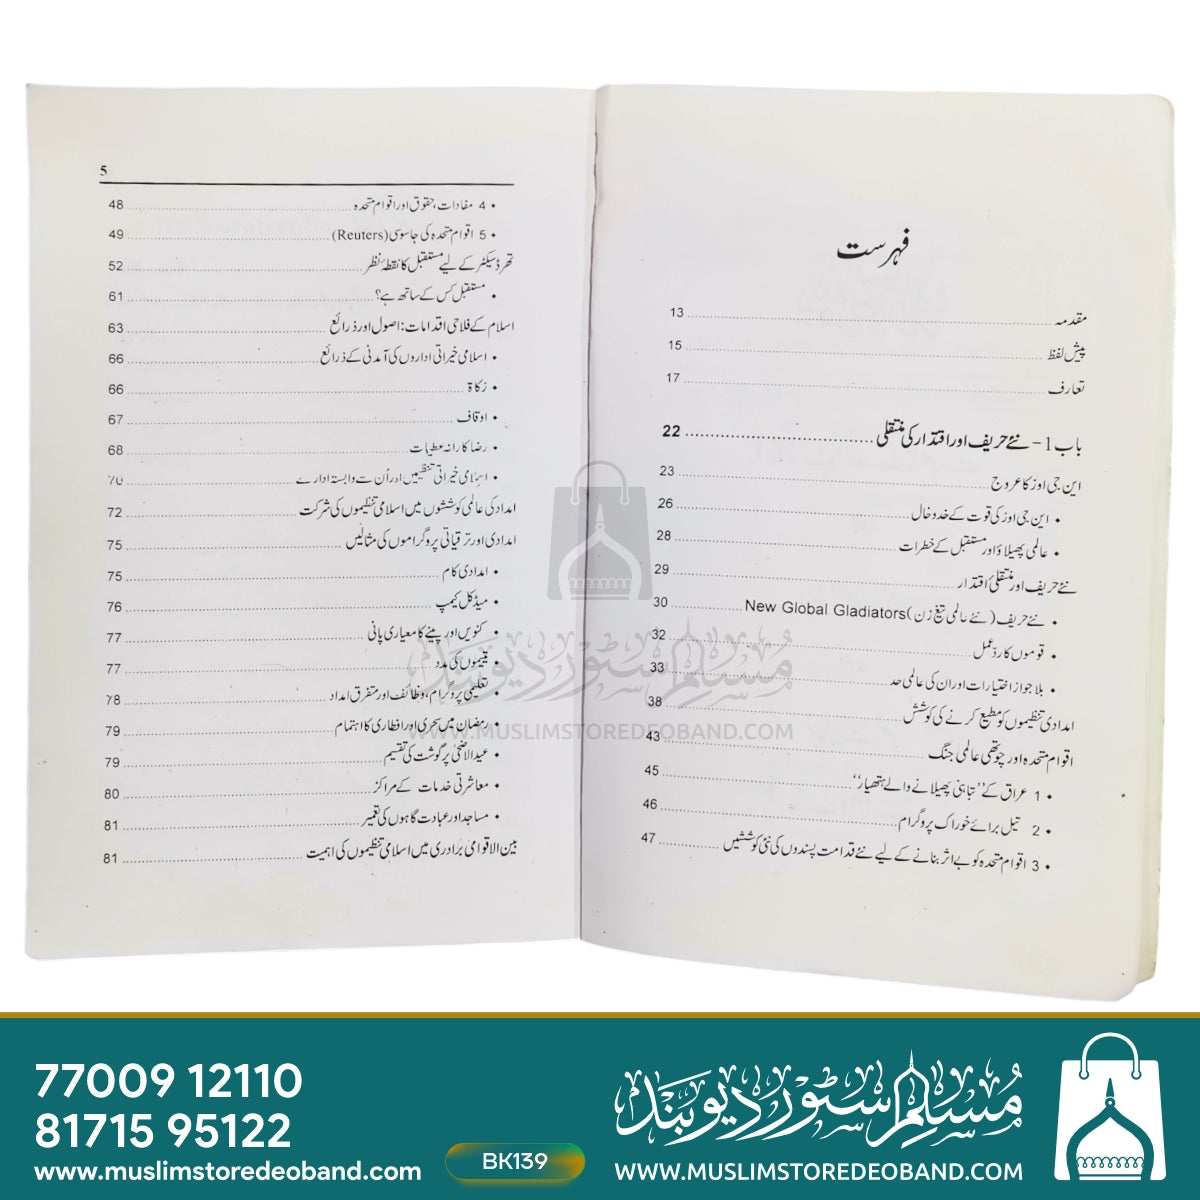 فہرست
مقدمہ 13
پیش لفظ 15
تعارف 17
باب 1- نئے حریف اور اقتدار کی منتقلی 22
این جی اوز کا عروج 23
• این جی اوز کی قوت کے خدوخال 26
• عالمی پھیلاؤ اور مستقبل کے خطرات 28
نئے حریف اور منتقلیٔ اقتدار 29
• نئے حریف (نئے عالمی تیغ زن) New Global Gladiators 30
• قوموں کا ردّعمل 32
• بلا جواز اختیارات اور ان کی عالمی حد 33
امدادی تنظیموں کو مطیع کرنے کی کوشش 38
اقوام متحدہ اور چوتھی عالمی جنگ 43
• 1 عراق کے "تباہی پھیلانے والے ہتھیار" 45
• 2 تیل برائے خوراک پروگرام 46
• 3 اقوام متحدہ کو بے اثر بنانے کے لیے نئے قدامت پسندوں کی نئی کوششیں 47
5
• 4 مفادات، حقوق اور اقوام متحدہ 48
• 5 اقوام متحدہ کی جاسوسی (Reuters) 49
تھرڈ سیکٹر کے لیے مستقبل کا نقطۂ نظر 52
• مستقبل کس کے ساتھ ہے؟ 61
اسلام کے فلاحی اقدامات: اصول اور ذرائع 63
• اسلامی خیراتی اداروں کی آمدنی کے ذرائع 66
• زکاۃ 66
• اوقاف 67
• رضا کارانہ عطیات 68
• اسلامی خیراتی تنظیمیں اور اُن سے وابستہ ادارے 70
امداد کی عالمی کوششوں میں اسلامی تنظیموں کی شرکت 72
امدادی اور ترقیاتی پروگراموں کی مثالیں 75
• امدادی کام 75
• میڈکل کیمپ 76
• کنویں اور پینے کا معیاری پانی 77
• یتیموں کی مدد 77
• تعلیمی پروگرام، وظائف اور متفرق امداد 78
• رمضان میں سحری اور افطاری کا اہتمام 79
• عیدالاضحیٰ پر گوشت کی تقسیم 79
• معاشرتی خدمات کے مراکز 80
• مساجد اور عبادت گاہوں کی تعمیر 81
بین الاقوامی برادری میں اسلامی تنظیموں کی اہمیت 81
مسلم سٹور دیوبند
WWW.MUSLIMSTOREDEOBAND.COM
77009 12110
81715 95122
www.muslimstoredeoband.com
BK139
مسلم سٹور دیوبند
WWW.MUSLIMSTOREDEOBAND.COM